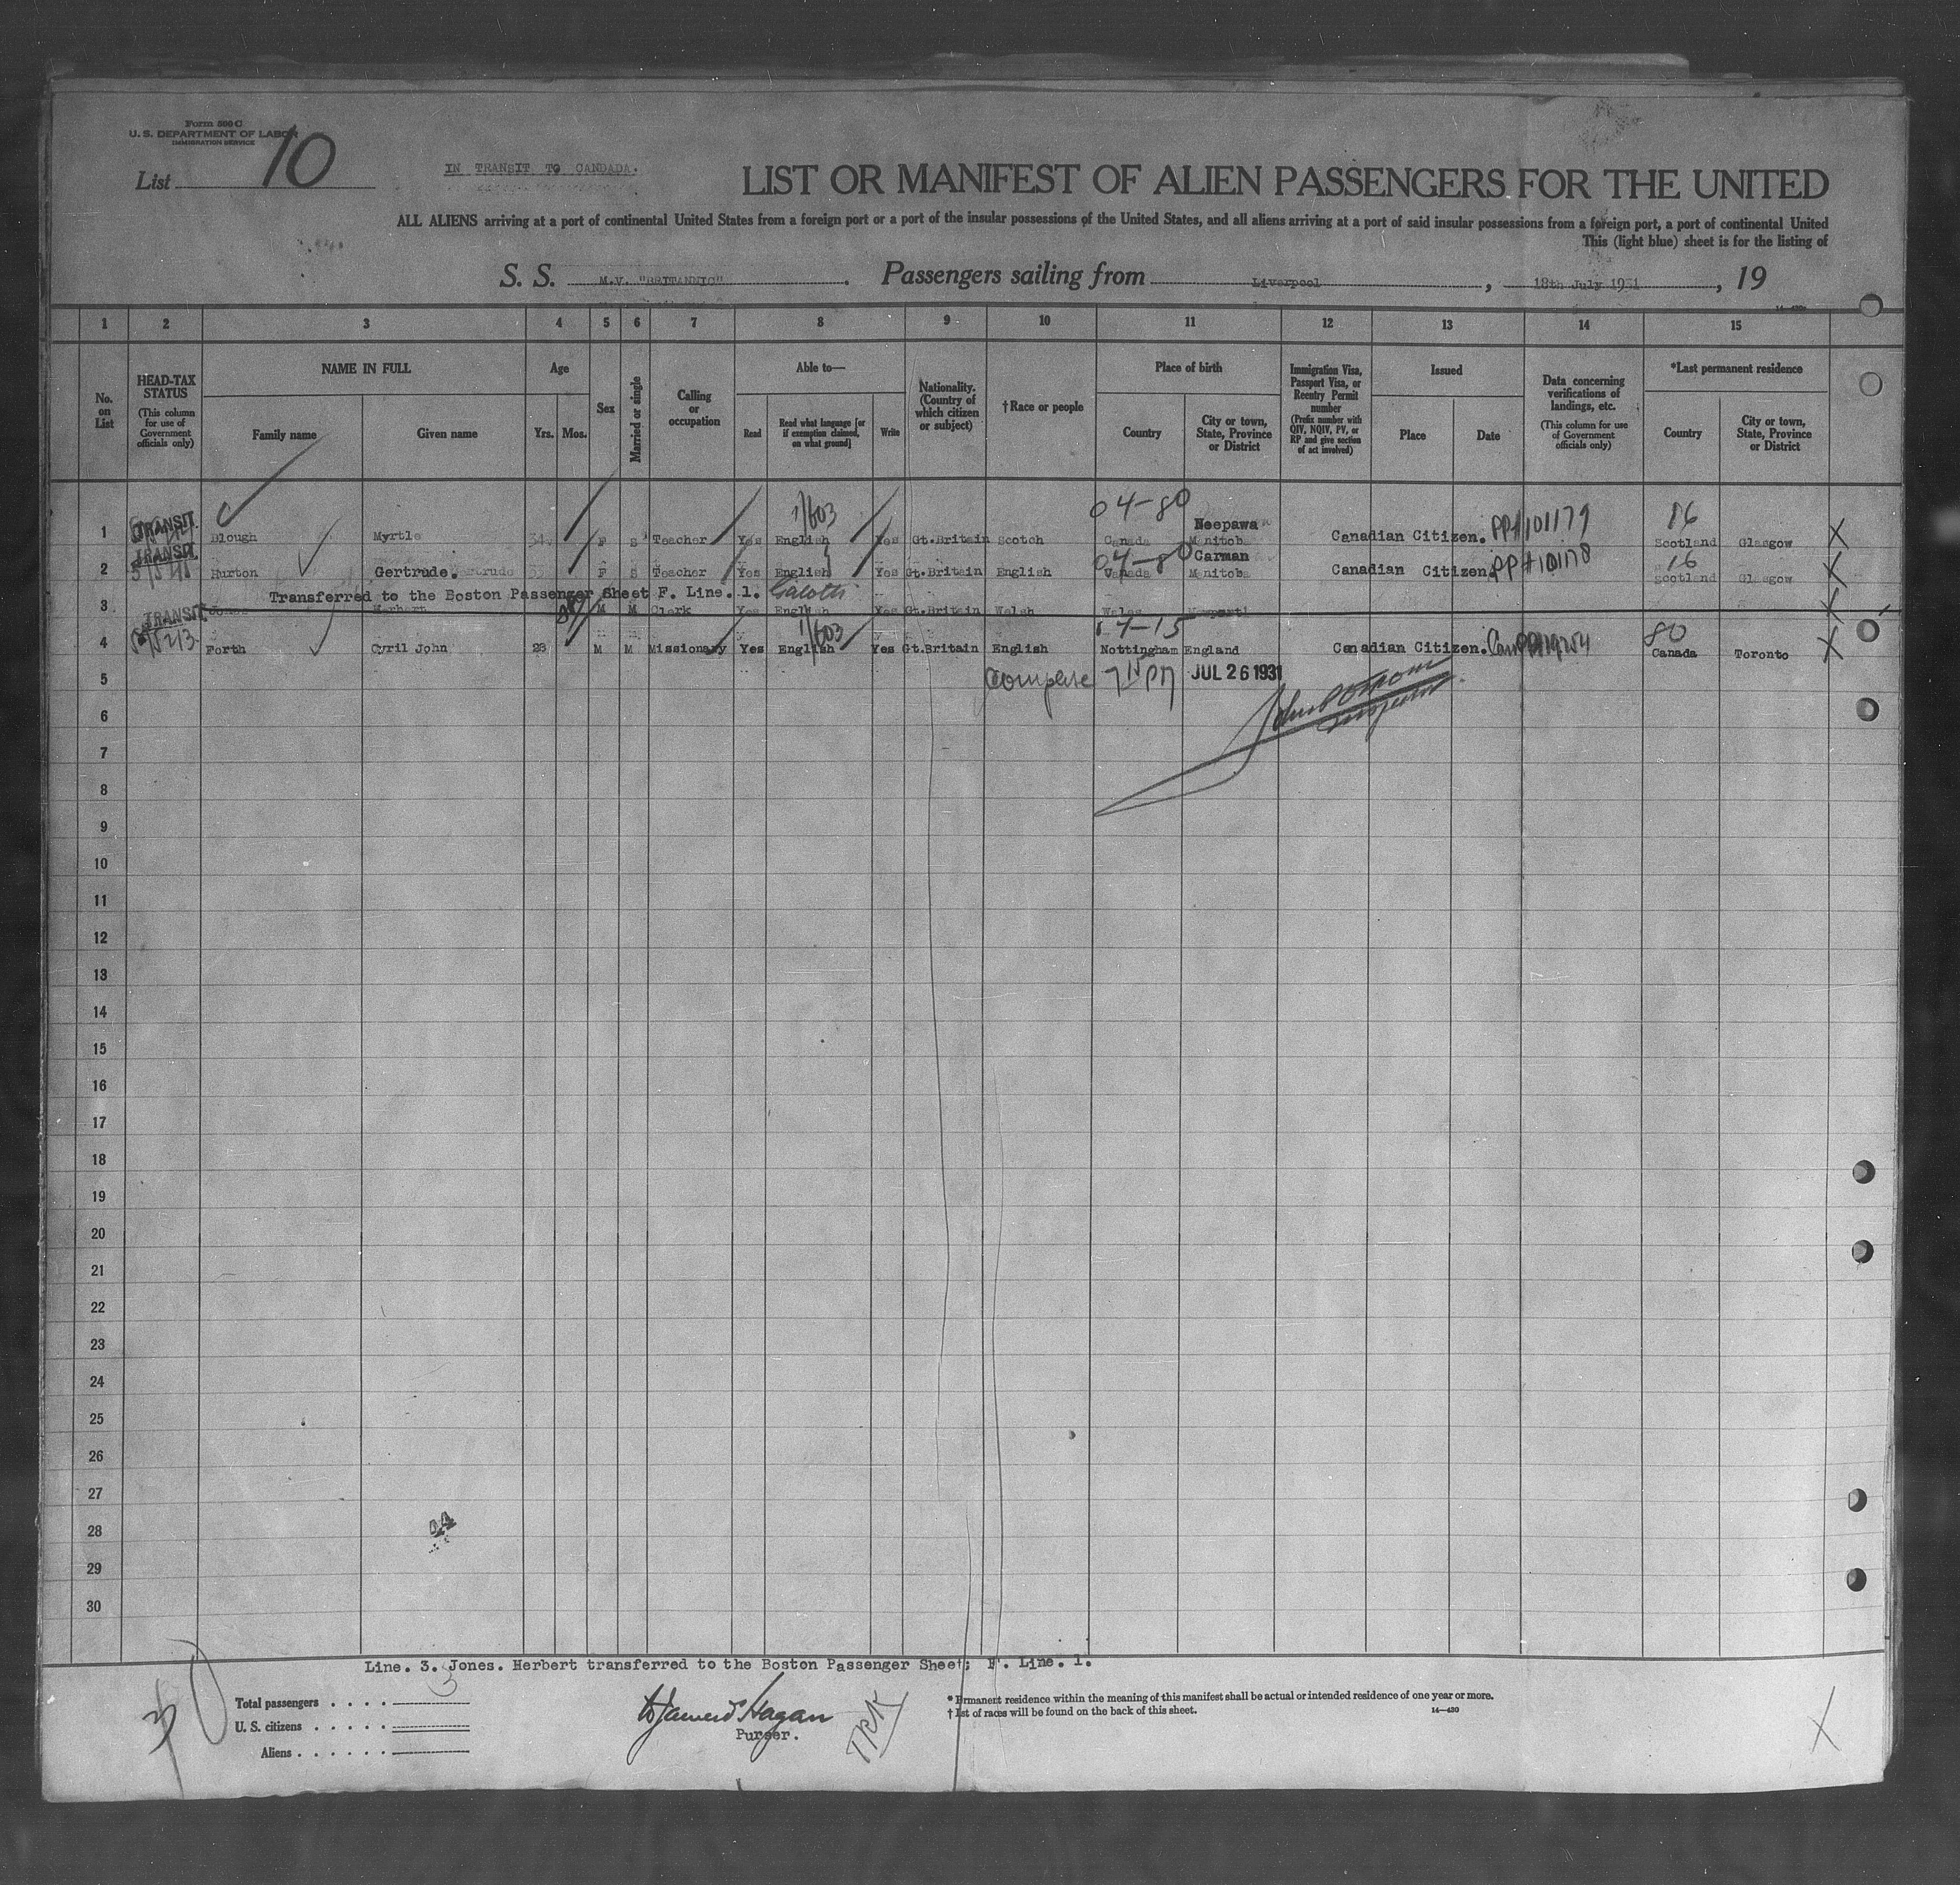 Form 500 C
U. S. DEPARTMENT OF LABOR
IMMIGRATION SERVICE
List 10
IN TRANSIT TO CANDADA.
LIST OR MANIFEST OF ALIEN PASSENGERS FOR THE UNITED
ALL ALIENS arriving at a port of continental United States from a foreign port or a port of the insular possessions of the United States, and all aliens arriving at a port of said insular possessions from a foreign port, a port of continental United
This (light blue) sheet is for the listing of
S. S. M.V. "BRITANNIC". Passengers sailing from Liverpool, 18th July 1931, 19
14—430
1 2 3 4 5 6 7 8 9 10 11 12 13 14 15
No. on List
HEAD-TAX STATUS (This column for use of Government officials only)
NAME IN FULL
Family name
Given name
Age
Yrs. Mos.
Sex
Married or single
Calling or occupation
Able to—
Read
Read what language [or if exemption claimed, on what ground]
Write
Nationality. (Country of which citizen or subject)
†Race or people
Place of birth
Country
City or town, State, Province or District
Immigration Visa, Passport Visa, or Reentry Permit number (Prefix number with QIV, NQIV, PV, or RP and give section of act involved)
Issued
Place
Date
Data concerning verifications of landings, etc. (This column for use of Government officials only)
*Last permanent residence
Country
City or town, State, Province or District
1/603 04-80 16
1 TRANSIT. Myrtle 34 F S Teacher Yes English Yes Gt.Britain Scotch Canada Neepawa Manitoba Canadian Citizen. PP#101179 Scotland Glasgow X
04-80 16
2 TRANSIT. Gertrude. F S Teacher Yes English Yes Gt.Britain English Canada Carman Manitoba Canadian Citizen. PP#101178 Scotland Glasgow X
Transferred to the Boston Passenger Sheet F. Line. 1.
3 Jones Herbert M M Clerk Yes English Yes Gt.Britain Welsh Wales X
1/603 04-15 80
4 TRANSIT Forth Cyril John 28 M M Missionary Yes English Yes Gt.Britain English Nottingham England Canadian Citizen. Canada Toronto X
5 JUL 26 1931
Inspector
6
7
8
9
10
11
12
13
14
15
16
17
18
19
20
21
22
23
24
25
26
27
28
29
30
44
Line. 3. Jones. Herbert transferred to the Boston Passenger Sheet; F. Line. 1.
Total passengers 3
U. S. citizens
Aliens
Hagan
Purser.
* Prmanent residence within the meaning of this manifest shall be actual or intended residence of one year or more.
† Ist of races will be found on the back of this sheet.
14—430
X